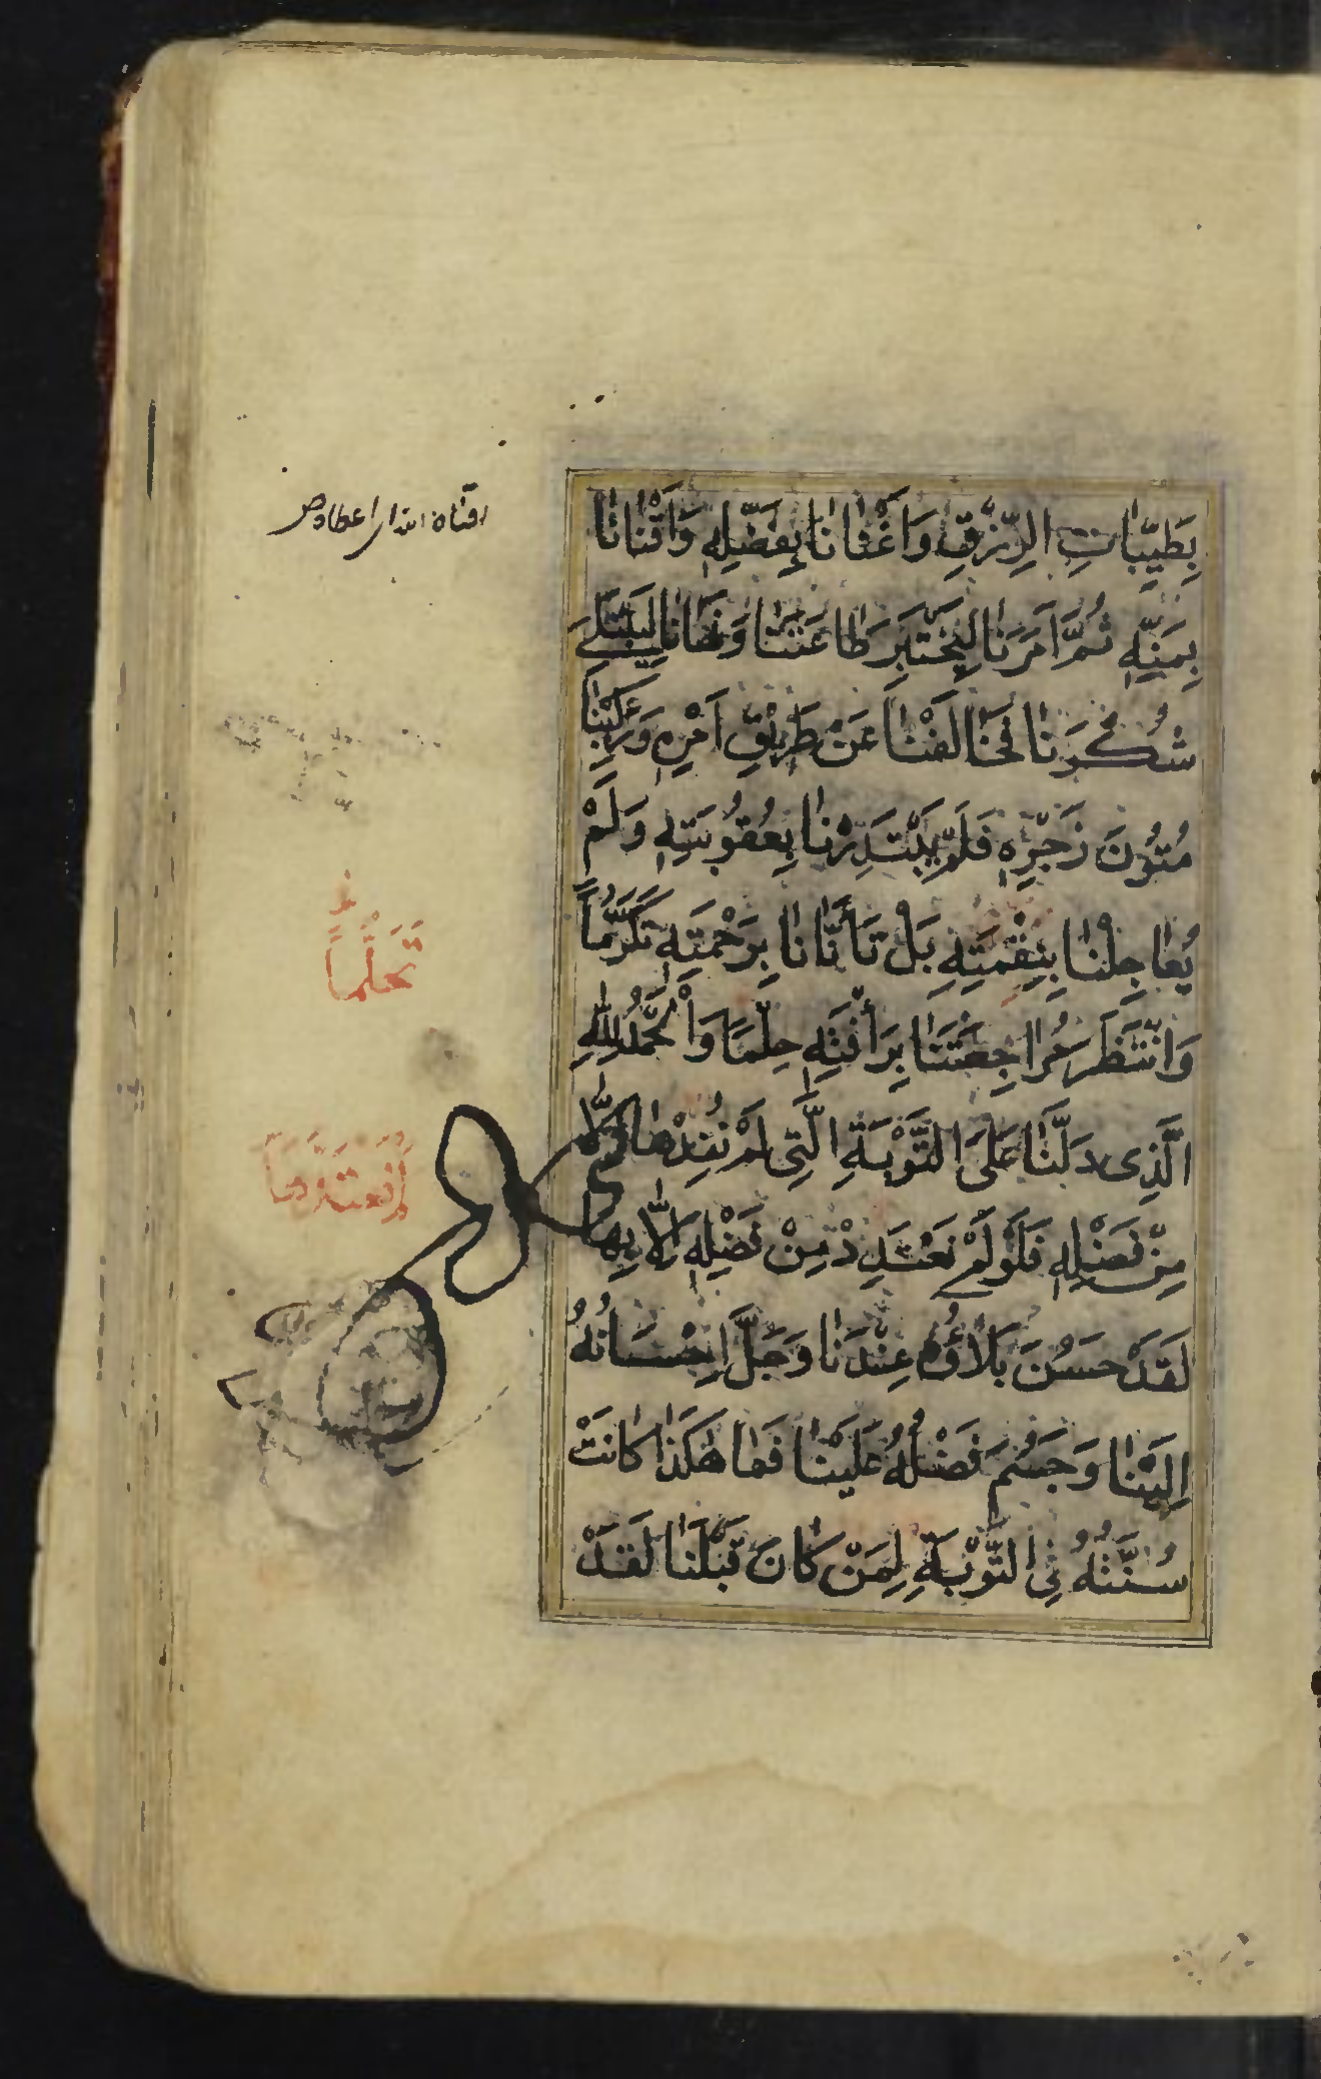 بِطَيِّبَاتِ الرِّزْقِ وَاَغْنَانَا بِفَضْلِهٖ وَاَقْنَانَا
بِمَنِّهٖ ثُمَّ اَمَرَنَا لِيَخْتَبِرَ طَاعَتَنَا وَنَهَانَا لِيَبْتَلِىَ
شُكْرَنَا فَخَالَفْنَا عَنْ طَرِيْقِ اَمْرِهٖ وَرَكِبْنَا
مُتُوْنَ زَجْرِهٖ فَلَمْ يَبْتَدِرْنَا بِعُقُوْبَتِهٖ وَلَمْ
يُعَاجِلْنَا بِنِقْمَتِهٖ بَلْ تَأَنَّانَا بِرَحْمَتِهٖ تَكَرُّمًا
وَانْتَظَرَ مُرَاجَعَتَنَا بِرَأْفَتِهٖ حِلْمًا وَالْحَمْدُ لِلّٰهِ
الَّذِى دَلَّنَا عَلَى التَّوْبَةِ الَّتِى لَمْ نُفِدْهَا اِلَّا
مِنْ فَضْلِهٖ فَلَوْ لَمْ نَعْتَدِدْ مِنْ فَضْلِهٖ اِلَّا بِهَا
لَقَدْ حَسُنَ بَلَاۤؤُهُ عِنْدَنَا وَجَلَّ اِحْسَانُهُ
اِلَيْنَا وَجَسُمَ فَضْلُهُ عَلَيْنَا فَمَا هٰكَذَا كَانَتْ
سُنَّتُهُ فِى التَّوْبَةِ لِمَنْ كَانَ قَبْلَنَا لَقَدْ
اقناه الله اى اعطاه
تَحَلُّمًا